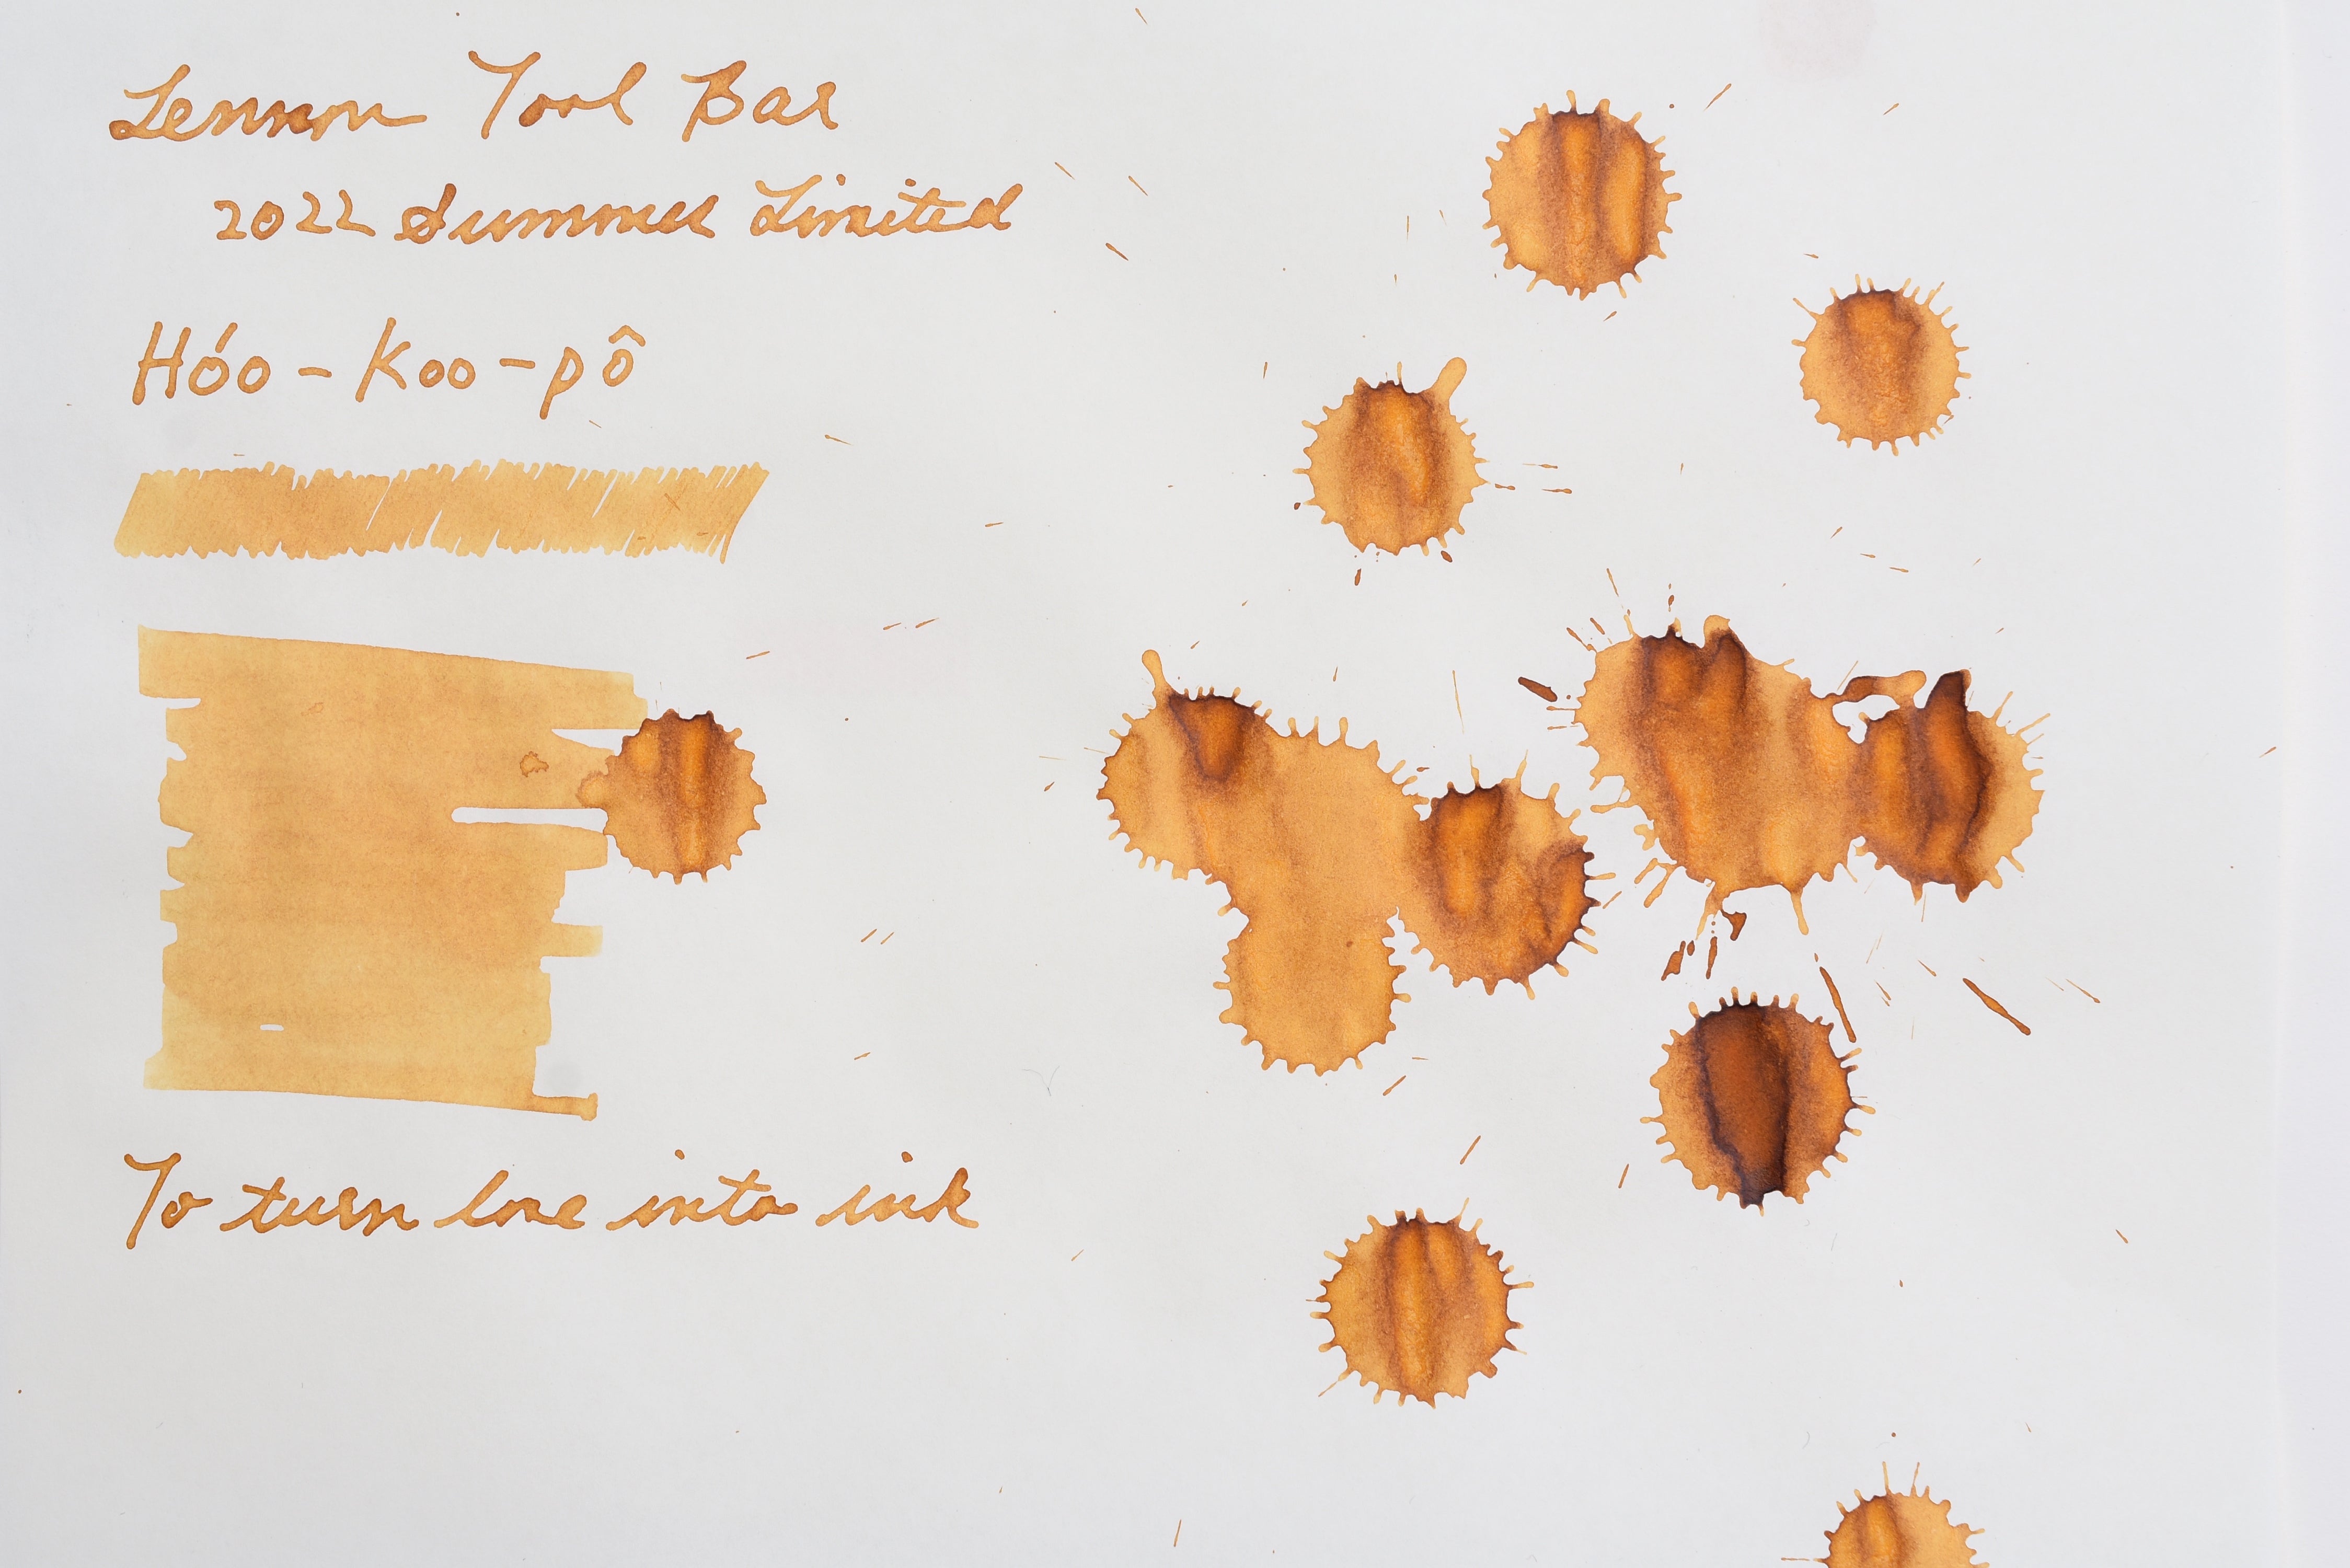 Lennon Tool Bar
2022 Summer Limited
Hóo-Koo-pô
To turn love into ink